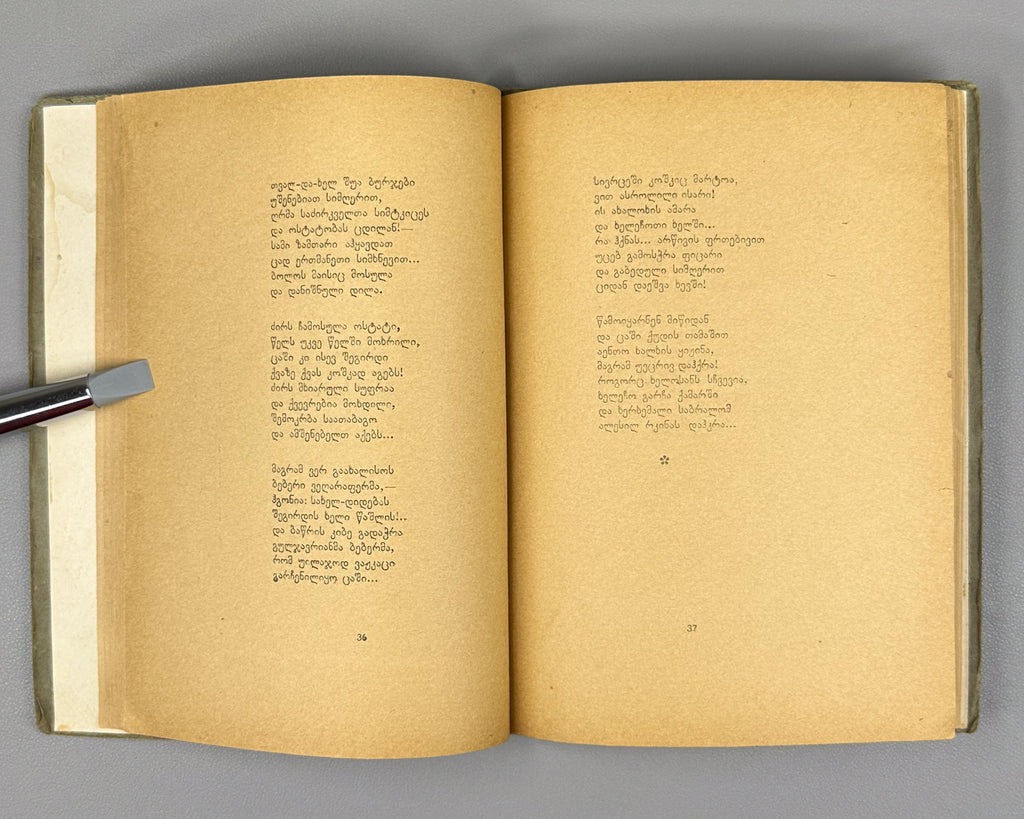 თვალ-და-ხელ შუა ბურჯები
უშენებიათ სიმღერით,
ღრმა საძირკველთა სიმტკიცეს
და ოსტატობას ცდილან!—
სამი ზამთარი აჰყავდათ
ცად ერთმანეთი სიმხნევით...
ბოლოს მაისიც მოსულა
და დანიშნული დილა.
ძირს ჩამოსულა ოსტატი,
წელს უკვე წელში მოხრილი,
ცაში კი ისევ შეგირდი
ქვაზე ქვას კოშკად აგებს!
ძირს მხიარული სუფრაა
და ქვევრებია მოხდილი,
შემოკრბა საათაბაგო
და ამშენებელთ აქებს...
მაგრამ ვერ გაახალისოს
ბებერი ვეღარაფერმა,—
ჰგონია: სახელ-დიდებას
შეგირდის ხელი წაშლის!..
და ბაწრის კიბე გადაჭრა
გულჯავრიანმა ბებერმა,
რომ უილაჯოდ ვაჟკაცი
გარჩენილიყო ცაში...
36
სივრცეში კოშკიც მარტოა,
ვით ასროლილი ისარი!
ის ახალოხის ამარა
და ხელეჩოთი ხელში...
რა ჰქნას... არწივის ფრთებივით
უცებ გამოსჭრა ფიცარი
და გაბედული სიმღერით
ციდან დაეშვა ხევში!
წამოიყარნენ მიწიდან
და ცაში ქუდის თამაშით
აენთო ხალხის ყიჟინა,
მაგრამ უეცრივ დაჰქრა!
როგორც ხელოსანს სჩვევია,
ხელეჩო გარჩა ქამარში
და ხერხემალი საბრალომ
ალესილ რკინას დაჰკრა...
37